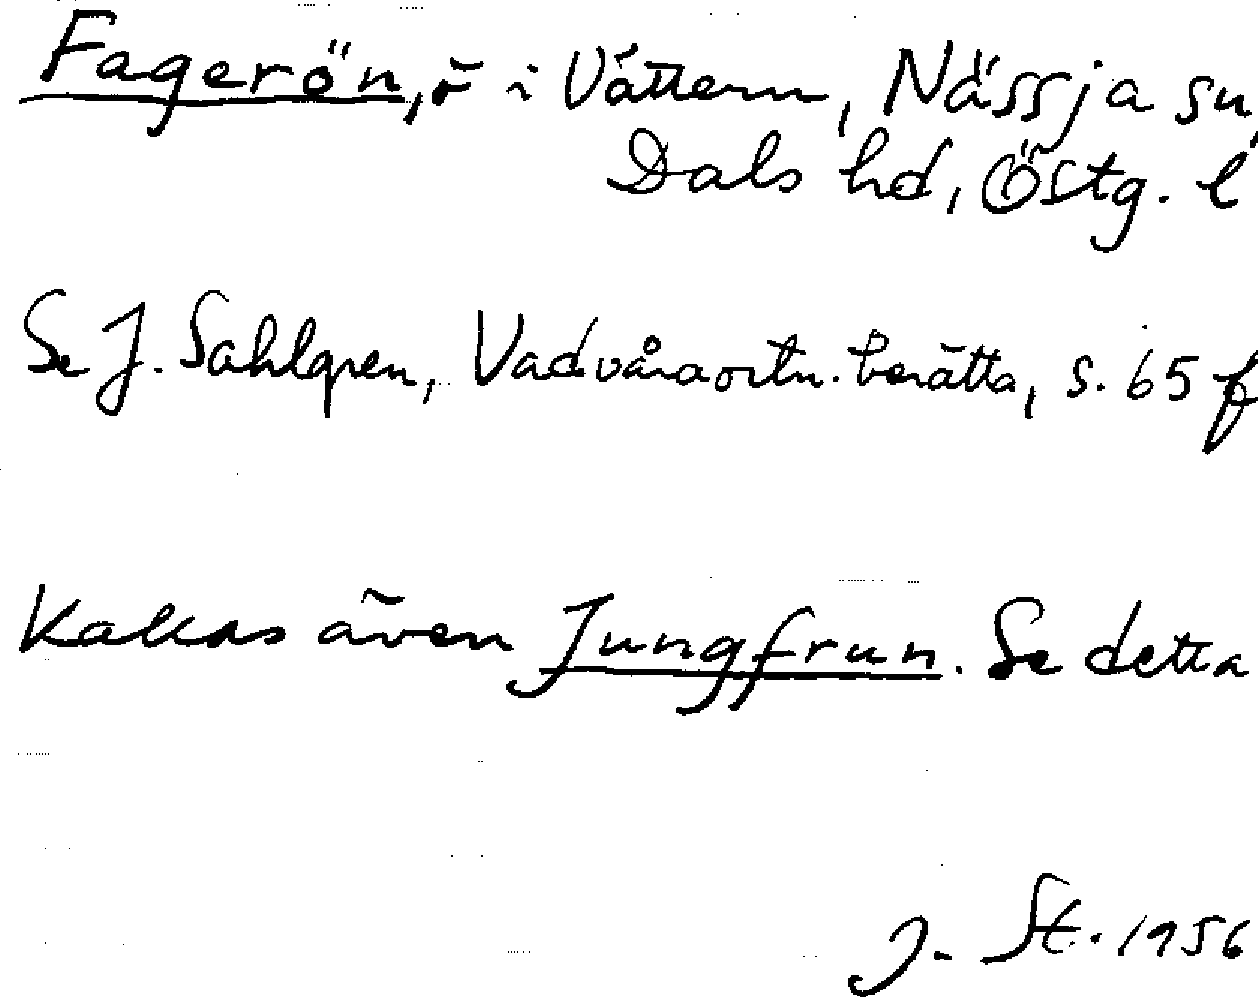 Fagerön, ö i Vättern, Nässja sn,
Dals hd, Östg. l
Se J. Sahlgren, Vad våra ortn. berätta, s. 65 f
Kallas även Jungfrun. Se detta
J. St. 1956